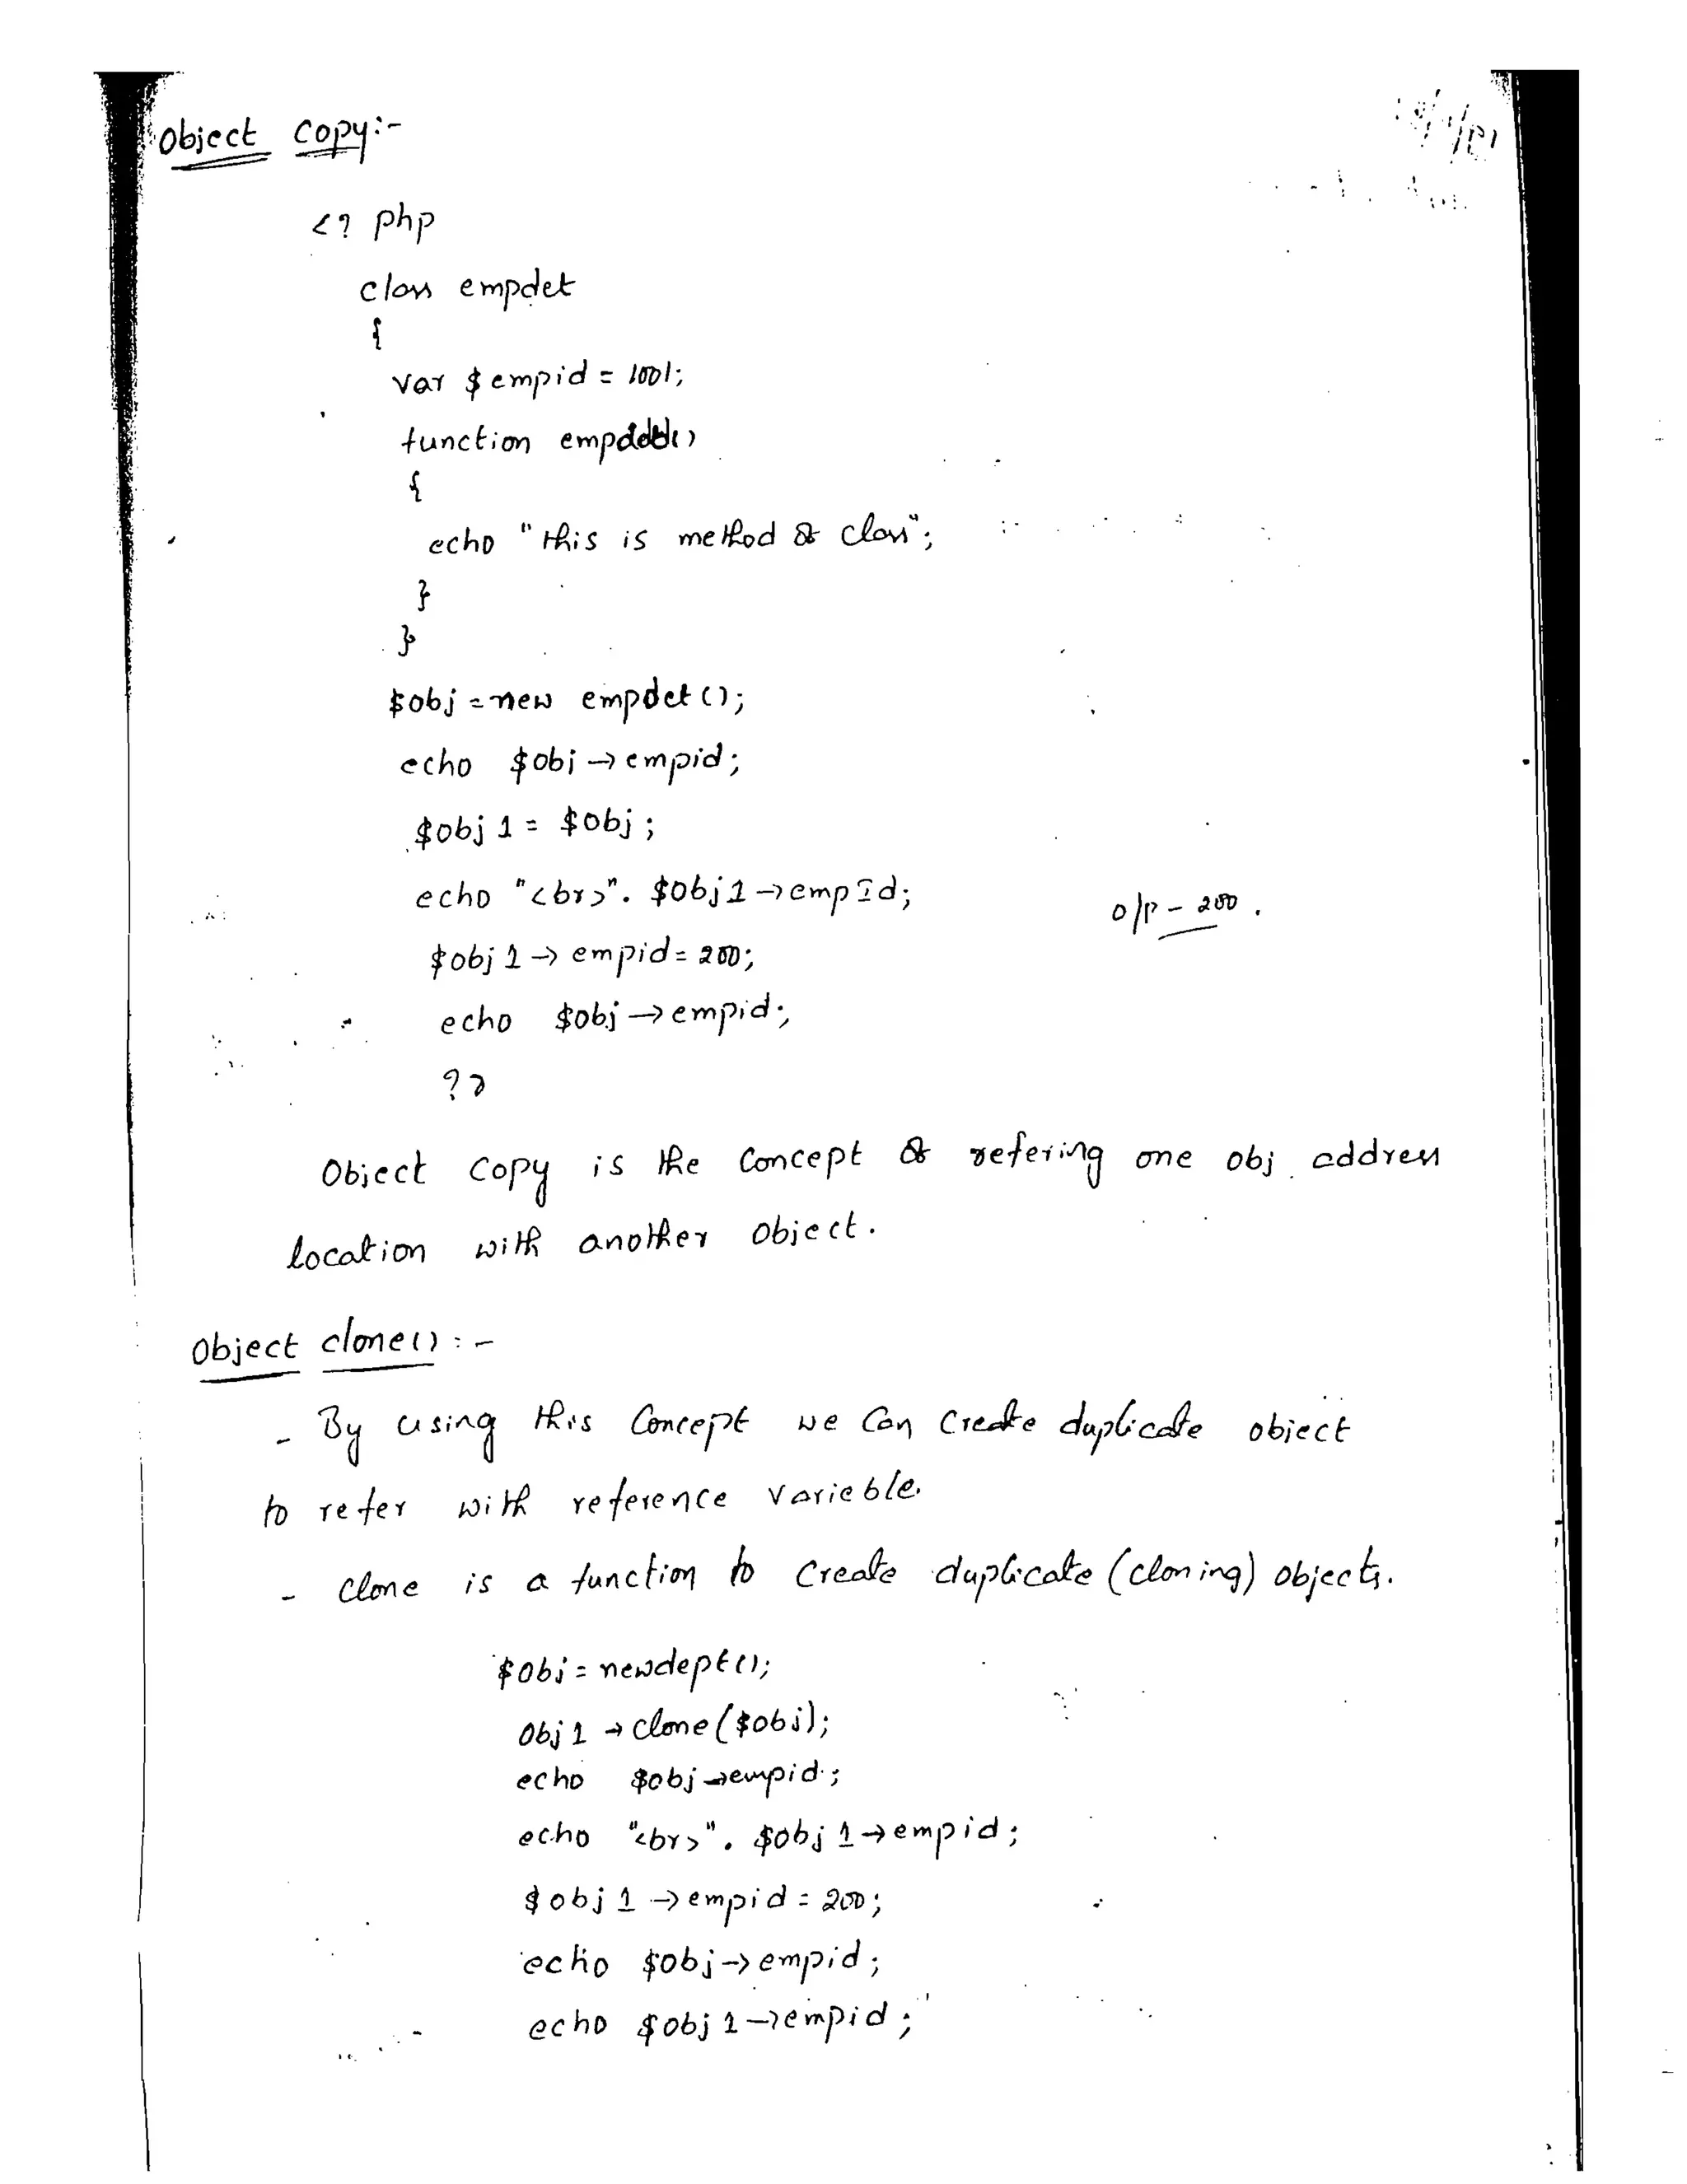 Object copy:-
<? php
class empdet
{
var $empid = 1001;
function
{
echo "this is method of class";
}
}
$obj = new empdet();
echo $obj → empid;
$obj 1 = $obj ;
echo "<br>". $obj1 → empId;
o/p - 200.
$obj 1 → empid = 200;
echo $obj → empid;
?>
Object copy is the concept of refering one obj address
location with another object.
Object clone() : -
- By using this concept we can create duplicate object
to refer with reference varieble.
- clone is a function to create duplicate (cloning) objects.
$obj = newdept();
Obj 1 → clone ($obj);
echo $obj → empid ;
echo "<br>". $obj 1 → empid ;
$obj 1 → empid = 200;
echo $obj → empid ;
echo $obj 1 → empid ;